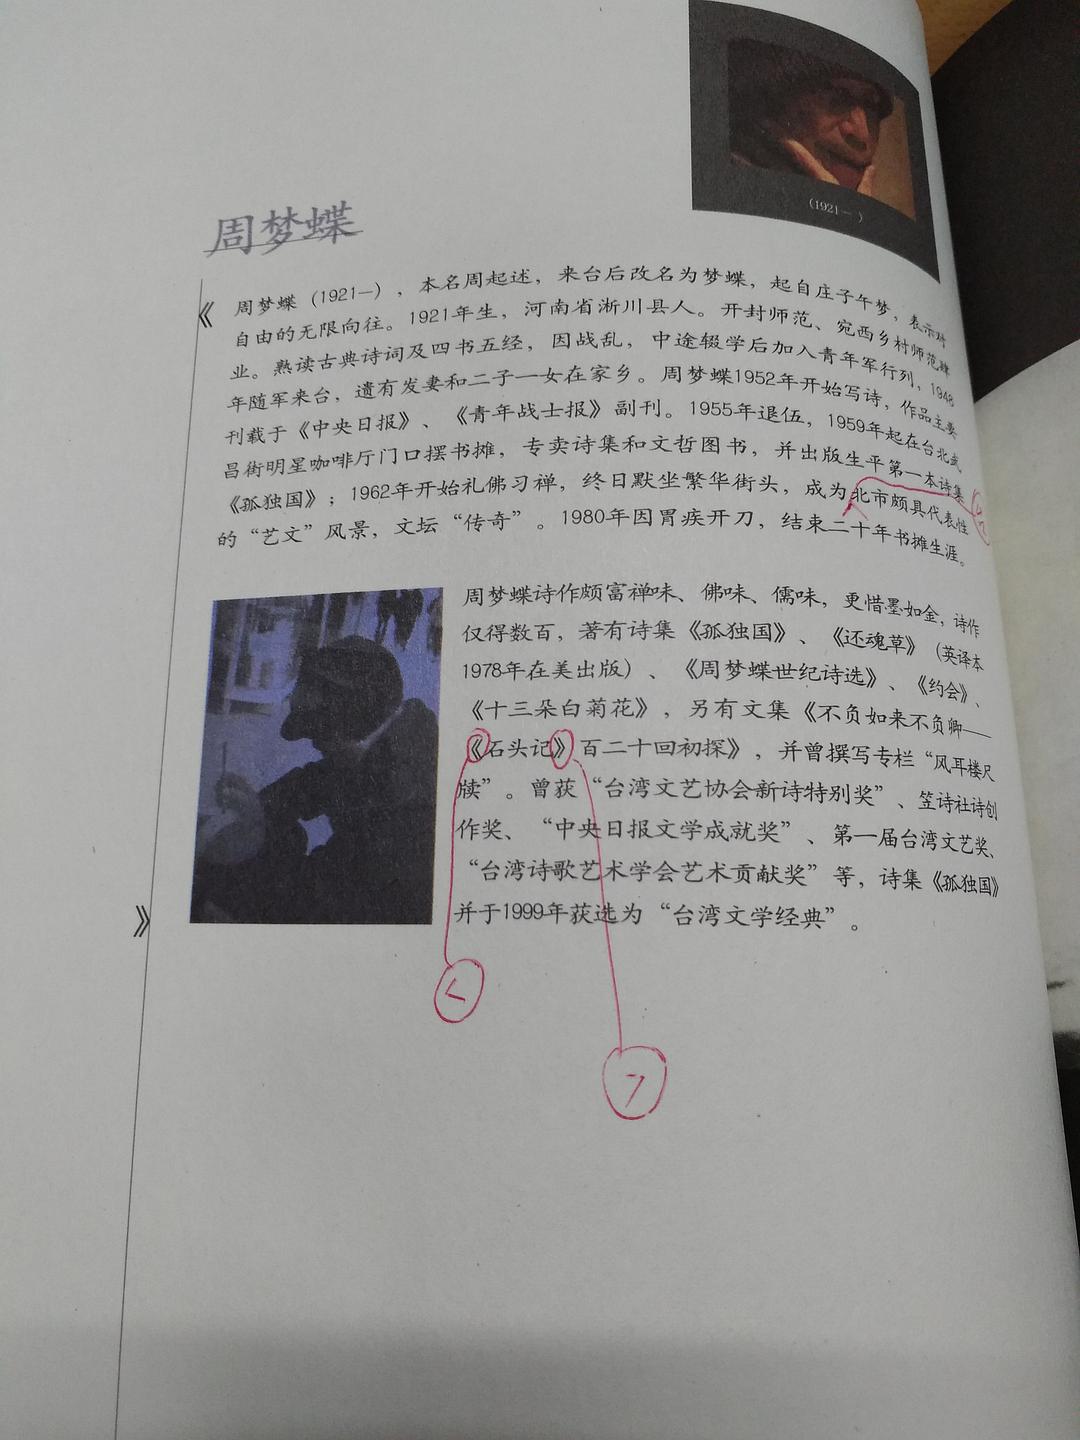 (1921— )
周梦蝶
《 周梦蝶（1921—），本名周起述，来台后改名为梦蝶，起自庄子午梦，表示对
自由的无限向往。1921年生，河南省淅川县人。开封师范、宛西乡村师范肄
业。熟读古典诗词及四书五经，因战乱，中途辍学后加入青年军行列，1948
年随军来台，遗有发妻和二子一女在家乡。周梦蝶1952年开始写诗，作品主要
刊载于《中央日报》、《青年战士报》副刊。1955年退伍，1959年起在台北武
昌街明星咖啡厅门口摆书摊，专卖诗集和文哲图书，并出版生平第一本诗集
《孤独国》；1962年开始礼佛习禅，终日默坐繁华街头，成为北市颇具代表性
的“艺文”风景，文坛“传奇”。1980年因胃疾开刀，结束二十年书摊生涯。
周梦蝶诗作颇富禅味、佛味、儒味，更惜墨如金，诗作
仅得数百，著有诗集《孤独国》、《还魂草》（英译本
1978年在美出版）、《周梦蝶世纪诗选》、《约会》、
《十三朵白菊花》，另有文集《不负如来不负卿——
《石头记》百二十回初探》，并曾撰写专栏“风耳楼尺
牍”。曾获“台湾文艺协会新诗特别奖”、笠诗社诗创
作奖、“中央日报文学成就奖”、第一届台湾文艺奖、
“台湾诗歌艺术学会艺术贡献奖”等，诗集《孤独国》
并于1999年获选为“台湾文学经典”。
》
<
>